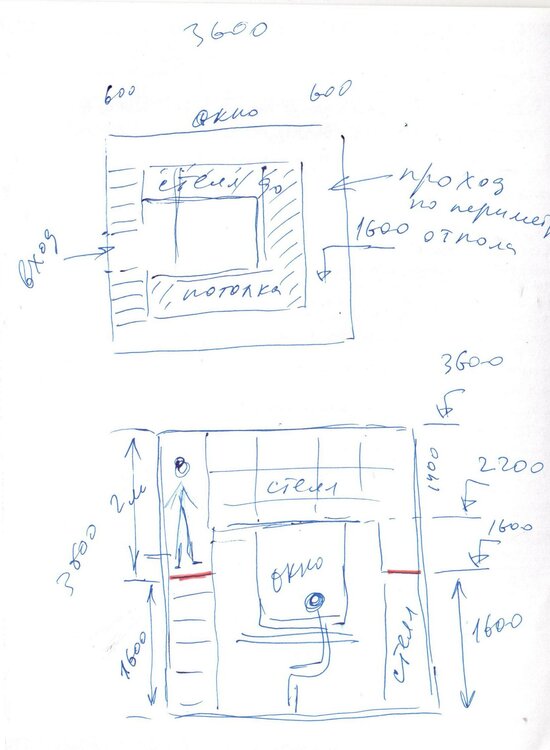 3600
600
600
окно
стелл до
потолка
вход
проход
по периметр
1600 от пола
3600
1400
2200
1600
2 м
стелл
окно
3600
1600
стелл
1600